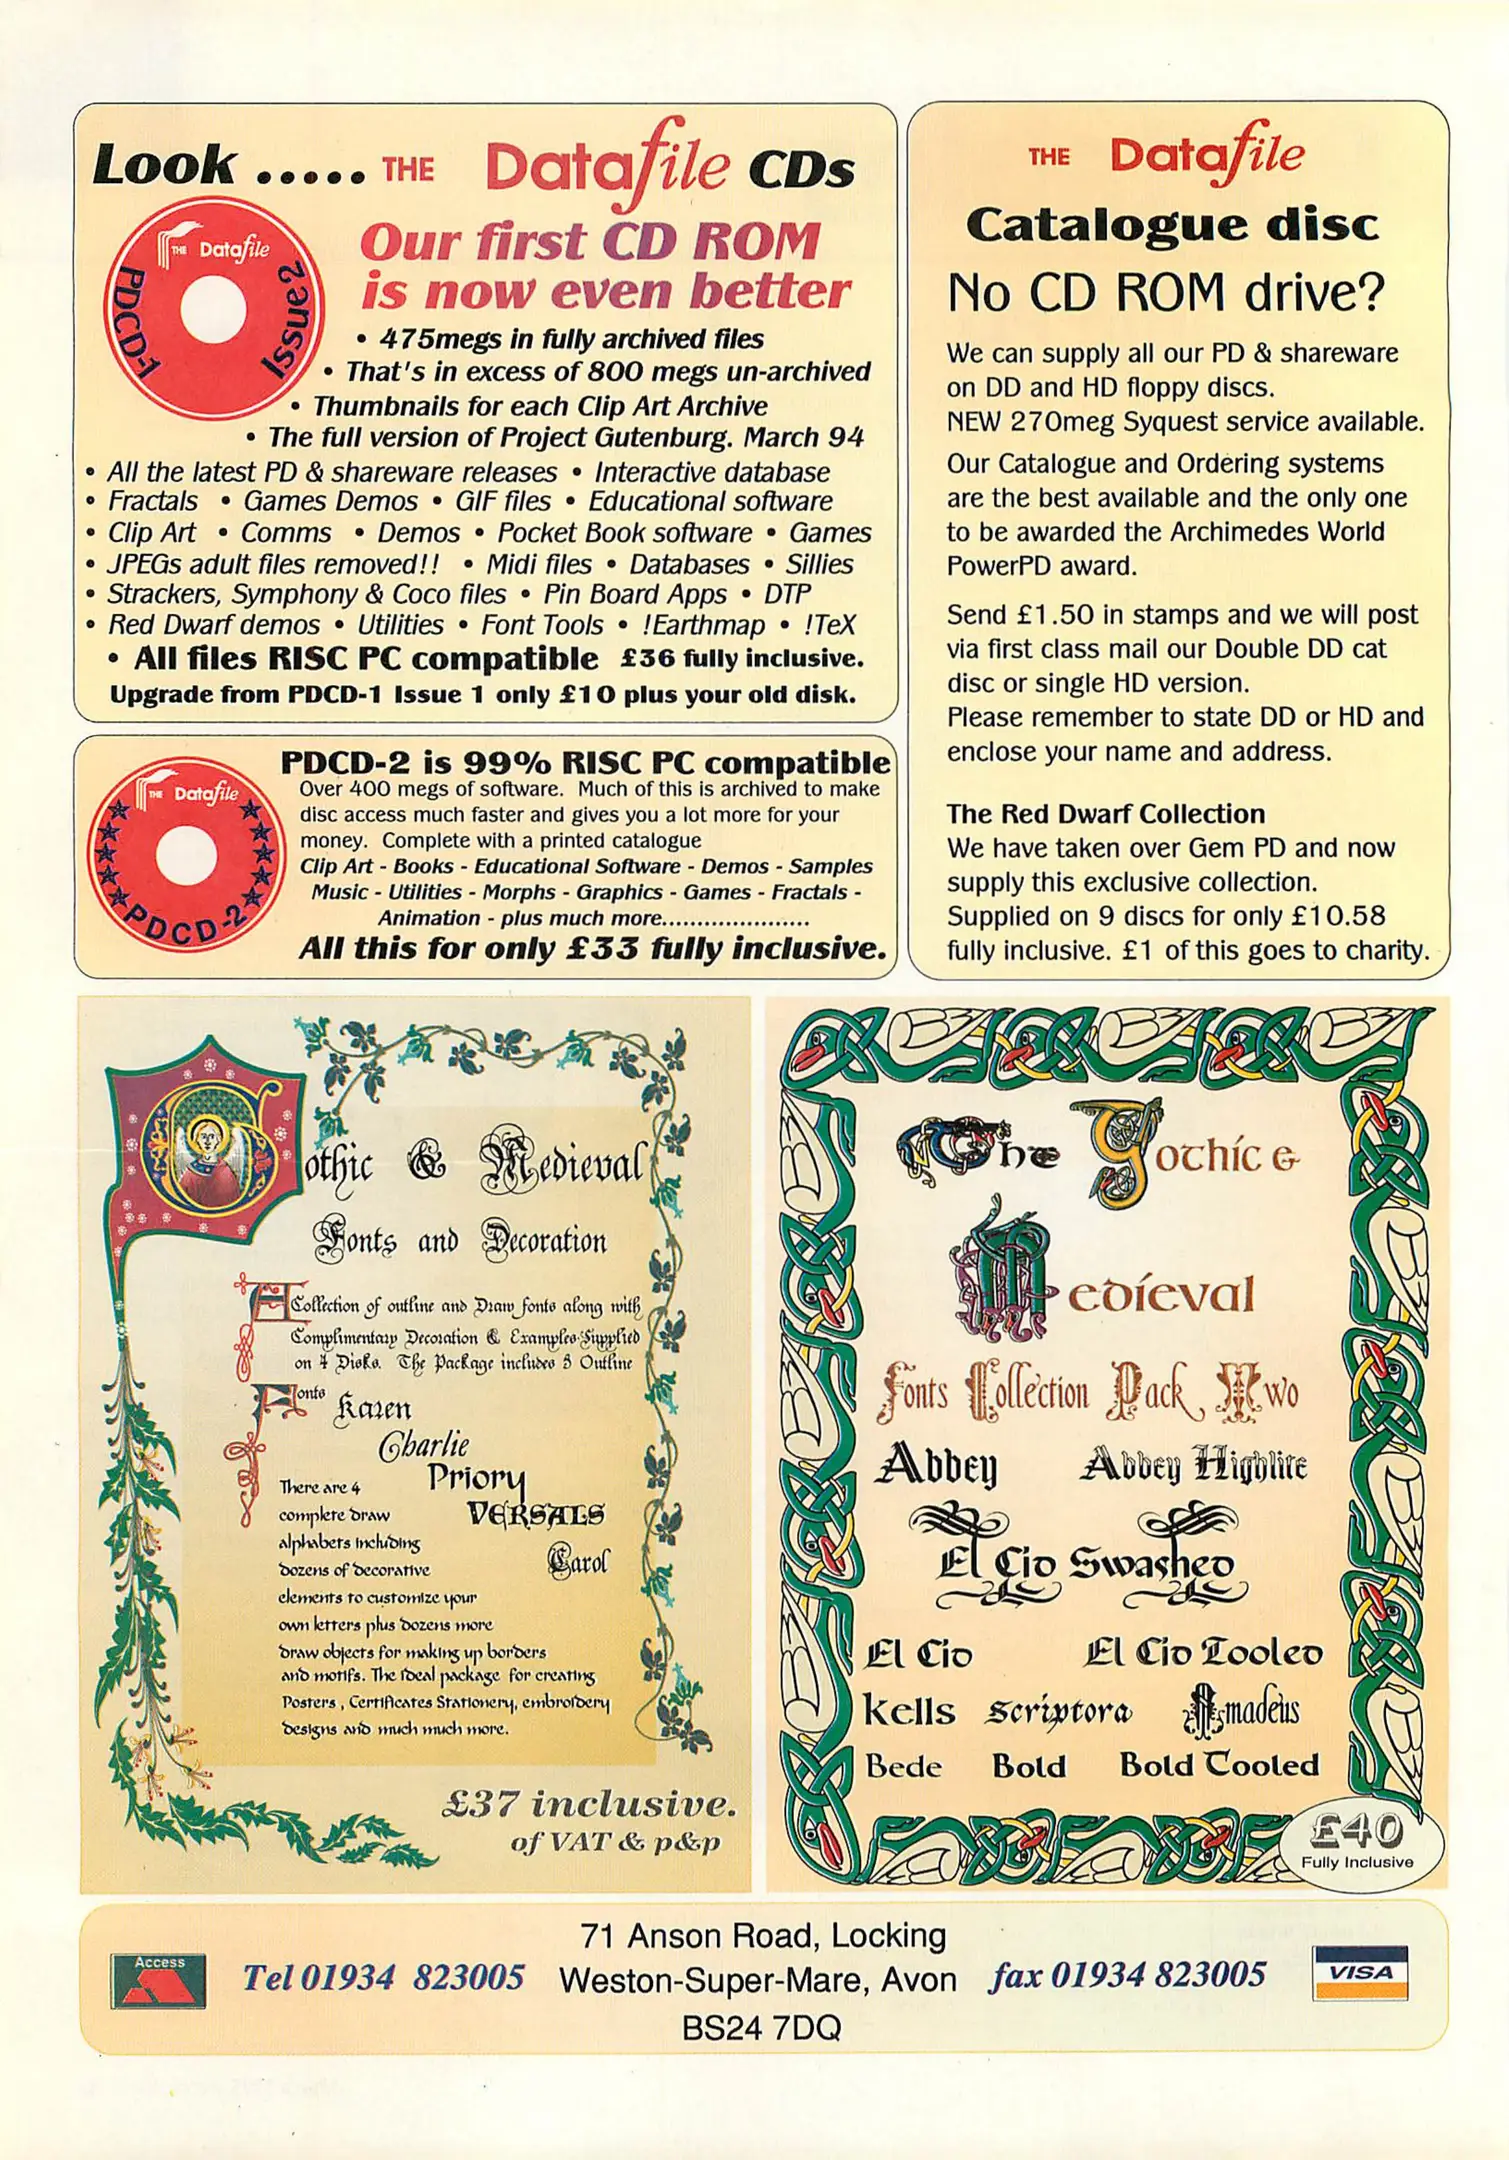 Look ..... THE Datafile CDs
THE Datafile
PDCD-1
Issue 2
Our first CD ROM
is now even better
• 475megs in fully archived files
• That's in excess of 800 megs un-archived
• Thumbnails for each Clip Art Archive
• The full version of Project Gutenburg. March 94
• All the latest PD & shareware releases • Interactive database
• Fractals • Games Demos • GIF files • Educational software
• Clip Art • Comms • Demos • Pocket Book software • Games
• JPEGs adult files removed!! • Midi files • Databases • Sillies
• Strackers, Symphony & Coco files • Pin Board Apps • DTP
• Red Dwarf demos • Utilities • Font Tools • !Earthmap • !TeX
• All files RISC PC compatible £36 fully inclusive.
Upgrade from PDCD-1 Issue 1 only £10 plus your old disk.
THE Datafile
PDCD-2
PDCD-2 is 99% RISC PC compatible
Over 400 megs of software. Much of this is archived to make
disc access much faster and gives you a lot more for your
money. Complete with a printed catalogue
Clip Art - Books - Educational Software - Demos - Samples
Music - Utilities - Morphs - Graphics - Games - Fractals -
Animation - plus much more.....................
All this for only £33 fully inclusive.
THE Datafile
Catalogue disc
No CD ROM drive?
We can supply all our PD & shareware
on DD and HD floppy discs.
NEW 270meg Syquest service available.
Our Catalogue and Ordering systems
are the best available and the only one
to be awarded the Archimedes World
PowerPD award.
Send £1.50 in stamps and we will post
via first class mail our Double DD cat
disc or single HD version.
Please remember to state DD or HD and
enclose your name and address.
The Red Dwarf Collection
We have taken over Gem PD and now
supply this exclusive collection.
Supplied on 9 discs for only £10.58
fully inclusive. £1 of this goes to charity.
Gothic & Medieval
Fonts and Decoration
A Collection of outline and Draw fonts along with
Complimentary Decoration & Examples Supplied
on 4 Disks. The Package includes 5 Outline
Fonts
Karen
Charlie
Priory
VERSALS
Carol
There are 4
complete draw
alphabets including
dozens of decorative
elements to customize your
own letters plus dozens more
draw objects for making up borders
and motifs. The ideal package for creating
Posters, Certificates Stationery, embroidery
designs and much much more.
£37 inclusive.
of VAT & p&p
The Gothic &
Medieval
Fonts Collection Pack Two
Abbey Abbey Highlite
El Cid Swashed
El Cid El Cid Tooled
Kells Scriptora Amadeus
Bede Bold Bold Tooled
£40
Fully Inclusive
Access
Tel 01934 823005
71 Anson Road, Locking
Weston-Super-Mare, Avon
BS24 7DQ
fax 01934 823005
VISA